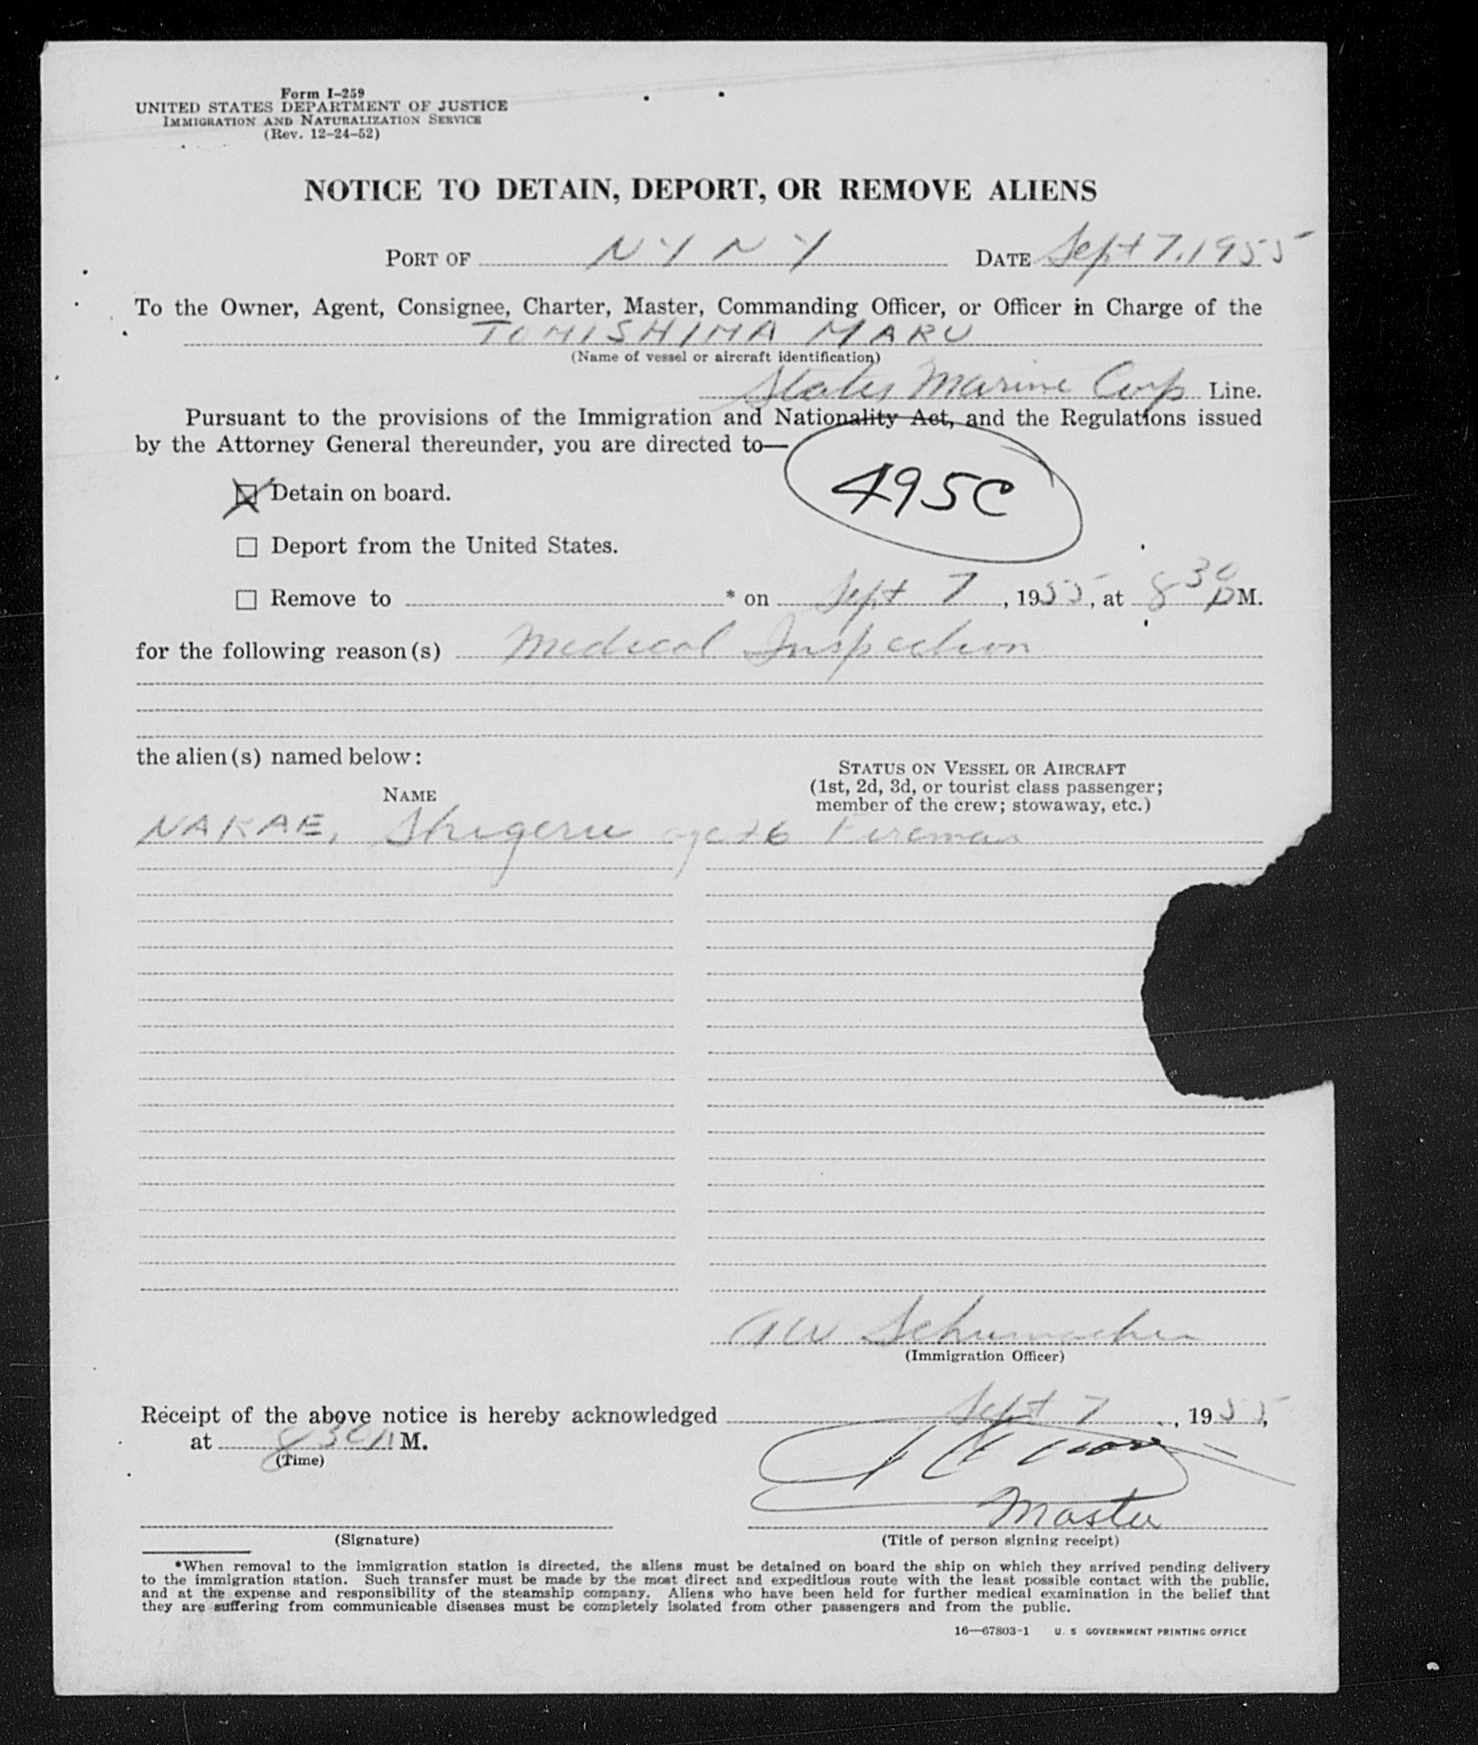 Form I-259
UNITED STATES DEPARTMENT OF JUSTICE
IMMIGRATION AND NATURALIZATION SERVICE
(Rev. 12-24-52)
NOTICE TO DETAIN, DEPORT, OR REMOVE ALIENS
PORT OF N Y N Y DATE Sept 7, 1955
To the Owner, Agent, Consignee, Charter, Master, Commanding Officer, or Officer in Charge of the
TOMISHIMA MARU
(Name of vessel or aircraft identification)
States Marine Corp Line.
Pursuant to the provisions of the Immigration and Nationality Act, and the Regulations issued
by the Attorney General thereunder, you are directed to—
495C
☒ Detain on board.
☐ Deport from the United States.
☐ Remove to * on Sept 7, 1955, at 8 30 PM.
for the following reason(s) Medical Inspection
the alien(s) named below:
NAME
STATUS ON VESSEL OR AIRCRAFT
(1st, 2d, 3d, or tourist class passenger;
member of the crew; stowaway, etc.)
NAKAE, Shigeru age 26 Fireman
AW Schumacher
(Immigration Officer)
Receipt of the above notice is hereby acknowledged Sept 7, 1955,
at 8 30 P M.
(Time)
Master
(Signature) (Title of person signing receipt)
*When removal to the immigration station is directed, the aliens must be detained on board the ship on which they arrived pending delivery
to the immigration station. Such transfer must be made by the most direct and expeditious route with the least possible contact with the public,
and at the expense and responsibility of the steamship company. Aliens who have been held for further medical examination in the belief that
they are suffering from communicable diseases must be completely isolated from other passengers and from the public.
16—67803-1 U. S GOVERNMENT PRINTING OFFICE